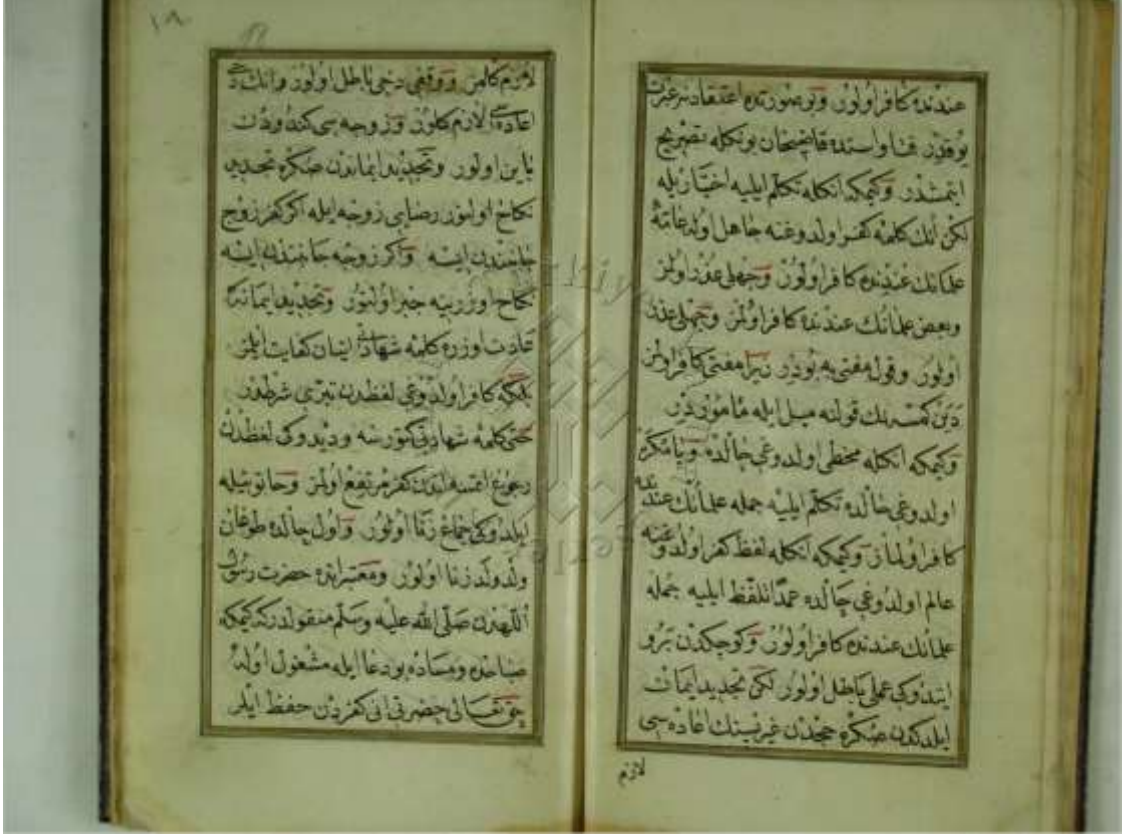 عندنده كافر اولور و بو صورتده اعتقادنه عبرت
يوقدر فتاواسنده قاضيخان بونكله تصريح
ايتمشدر و كيمكه انكله تكلم ايليه اختيار يله
لكن انك كلمهٔ كفر اولدوغنه جاهل اوله عامهٔ
علمانك عندنده كافر اولور و جهلى عذر اولمز
و بعض علمانك عندنده كافر اولمز و جهلى عذر
اولور و قول مفتى به بودر زيرا مفتى كافر اولمز
دين كمسه نك قولنه ميل ايله مأموردر
و كيمكه انكله مخطى اولدوغى حالده و يا مكره
اولدوغى حالده تكلم ايليه جمله علمانك عندنده
كافر اولماز و كيمكه انكله لفظ كفر اولدوغنه
عالم اولدوغى حالده عمدا تلفظ ايليه جمله
علمانك عندنده كافر اولور و كوچكدن برو
ايتدوكى عملى باطل اولور لكن تجديد ايمان
ايلدكدن صكره حجدن غيريسينك اعاده سى
لازم
١٩٠
لازم كلمز و وقفى دخى باطل اولور و انك دخى
اعاده سى لازم كلور و زوجه سى كندودن
باين اولور و تجديد ايماندن صكره تجديد
نكاح اولنور رضاى زوجه ايله اكر كفر زوج
جانبندن ايسه و اكر زوجه جانبندن ايسه
نكاح اوزرينه جبر اولنور و تجديد ايمانده
عادت اوزره كلمهٔ شهادتى اتيان كفايت ايلمز
بلكه كافر اولدوغى لفظدن تبرى شرطدر
حتى كلمهٔ شهادتى كتورسه و ديدوكى لفظدن
رجوع اتمسه اندن كفر مرتفع اولمز و خاتونيله
ايلدوكى جماع زنا اولور و اول حالده طوغان
ولد ولد زنا اولور و معتبراتده حضرت رسول
اللهدن صلى الله عليه وسلم منقولدركه كيمكه
صباحده و مساده بو دعا ايله مشغول اوله
حق تعالى حضرتى انى كفردن حفظ ايلر